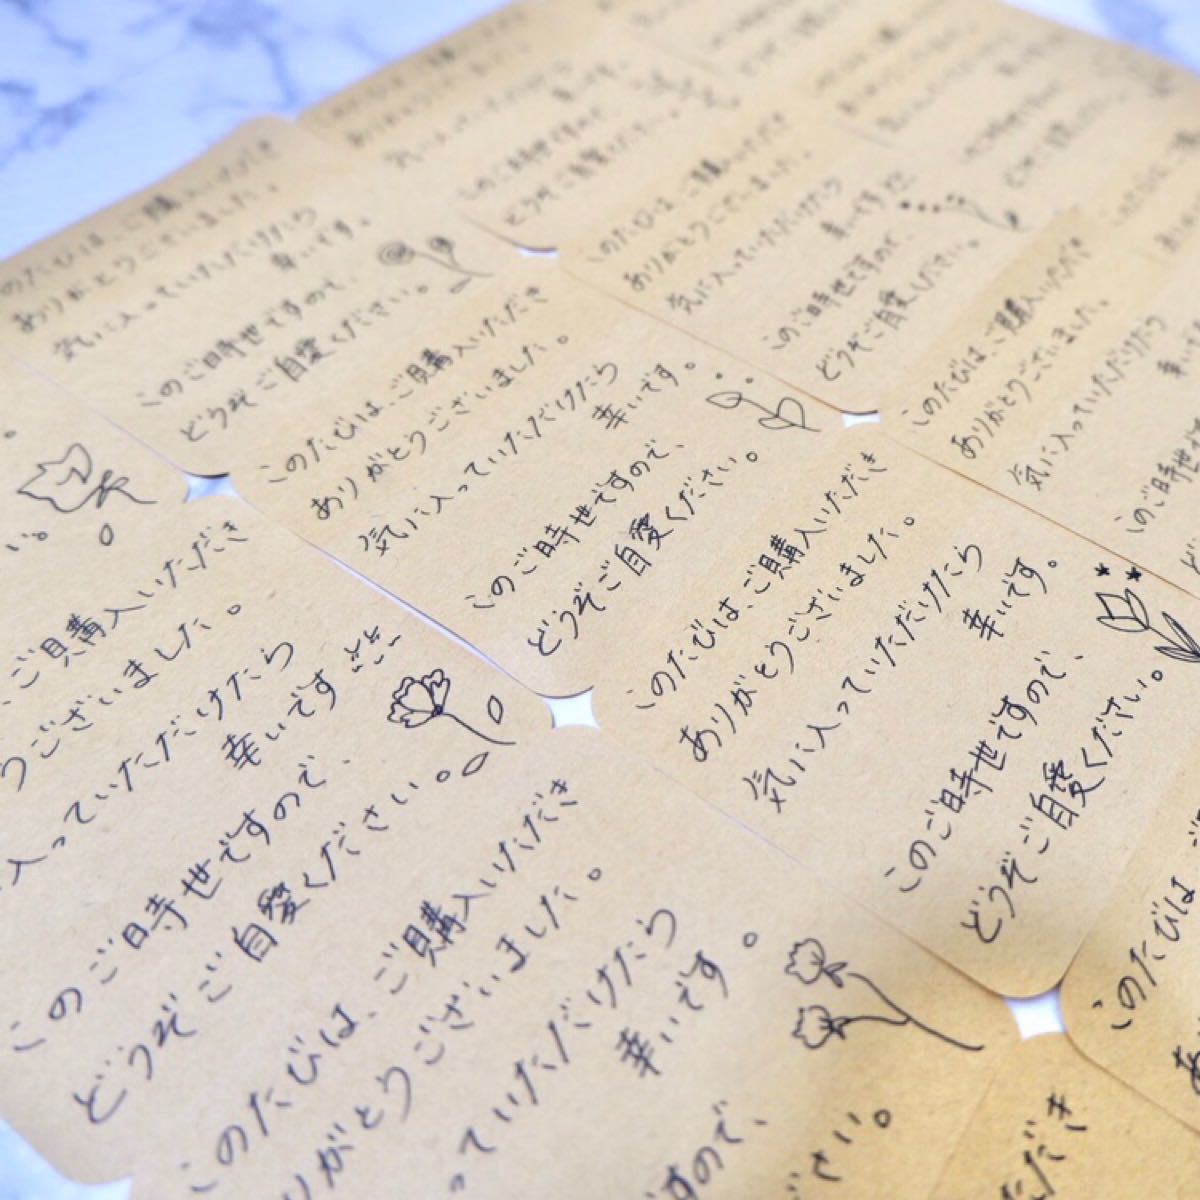 このたびは、ご購入いただき
ありがとうございました。
気に入っていただけたら
幸いです。
このご時世ですので、
どうぞご自愛ください。
のたびは、ご購入いただき
ありがとうございました。
気に入っていただけたら
幸いです。
このご時世ですので、
どうぞご自愛ください。
このたびは、ご購入いただき
ありがとうございました。
気に入っていただけたら
幸いです
このご時世ですので、
どうぞご自愛ください。
このたびは、ご購入いただき
ありがとうございました。
気に入っていただけたら
幸いです。
このご時世ですので、
どうぞご自愛ください。
このたびは、ご購入いただき
ありがとうございました。
気に入っていただけたら
幸いで
このご時世
ど
ご購入いただき
うございました。
入っていただけたら
幸いです
このご時世ですので、
どうぞご自愛ください。
このたびは、ご購入いただき
りがとうございました。
っていただけたら
幸いです。
すので、
ださい。
このたびは、
あ
ただき